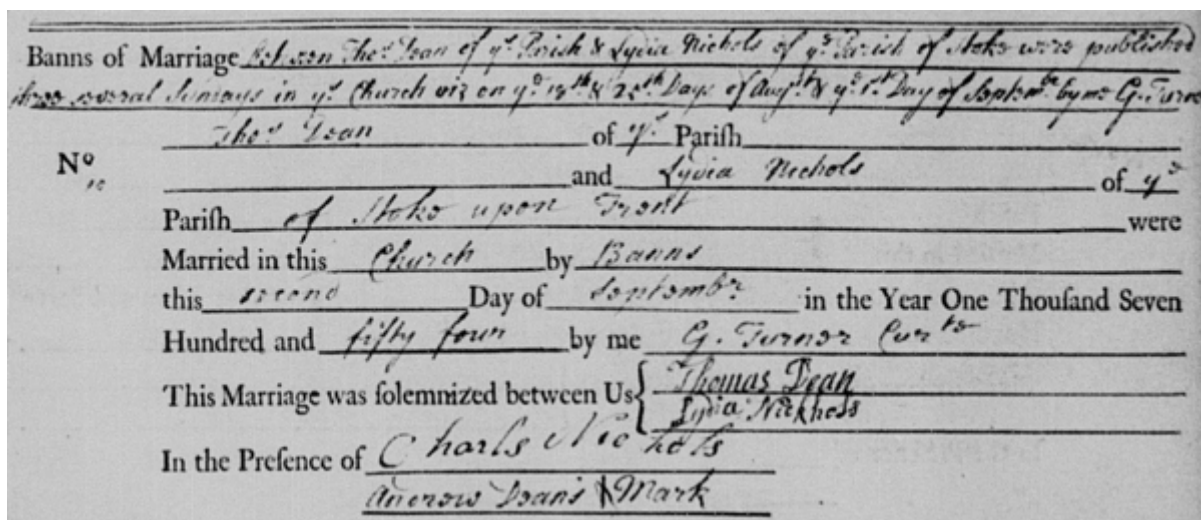 Banns of Marriage Between Thos. Dean of ye. Parish & Lydia Nichols of ye. Parish of Stoke were published
three several Sundays in ye. Church viz on ye. 18th & 25th Days of Augst. & ye. 1st. Day of Septembr. by me G. Turner
Thos. Dean of ye. Pariſh
No. 10 and Lydia Nichols of ye
Pariſh of Stoke upon Trent were
Married in this Church by Banns
this second Day of Septembr. in the Year One Thouſand Seven
Hundred and fifty four by me G. Turner Curte
This Marriage was ſolemnized between Us { Thomas Dean
Lydia Nickhess
In the Preſence of Charls Nichols
Andrew Dean's X Mark